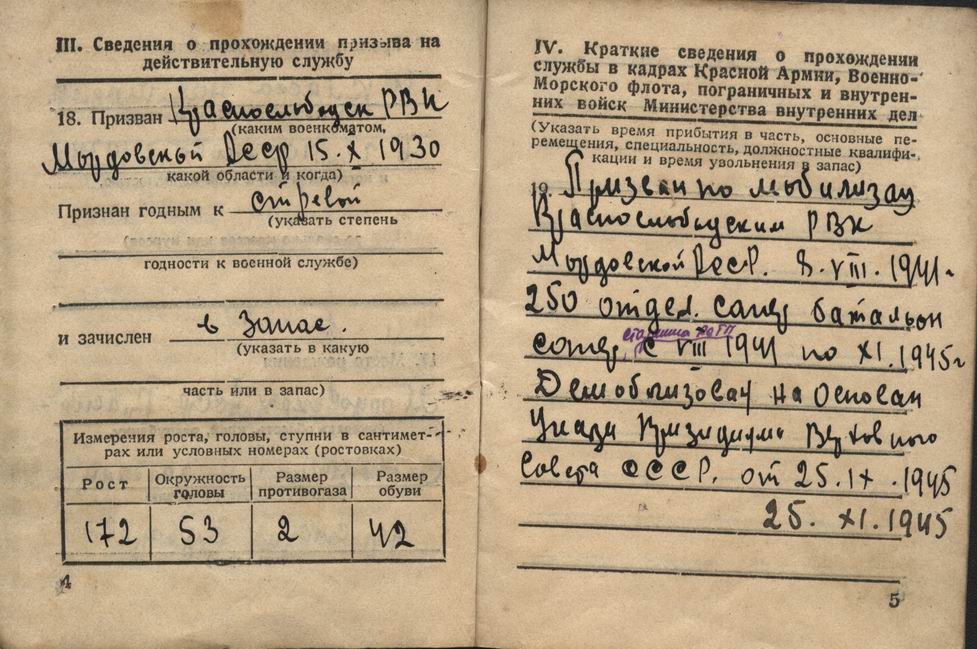 III. Сведения о прохождении призыва на
действительную службу
18. Призван Краснослободск РВК
(каким военкоматом,
Мордовской АССР 15.X 1930
какой области и когда)
Признан годным к строевой
(указать степень
годности к военной службе)
и зачислен в запас.
(указать в какую
часть или в запас)
Измерения роста, головы, ступни в сантимет-
рах или условных номерах (ростовках)
Рост Окружность головы Размер противогаза Размер обуви
172 53 2 42
4
IV. Краткие сведения о прохождении
службы в кадрах Красной Армии, Военно-
Морского флота, пограничных и внутрен-
них войск Министерства внутренних дел
(Указать время прибытия в часть, основные пе-
ремещения, специальность, должностные квалифи-
кации и время увольнения в запас)
19. Призван по мобилизац
Краснослободским РВК
Мордовской АССР. 8.VIII.1941г
250 отдел. сапер батальон
старшина
сапер, с VIII 1941 по XI.1945г
Демобилизован на основан
Указа Президиума Верховного
Совета СССР. от 25.IX.1945
25.XI.1945
5